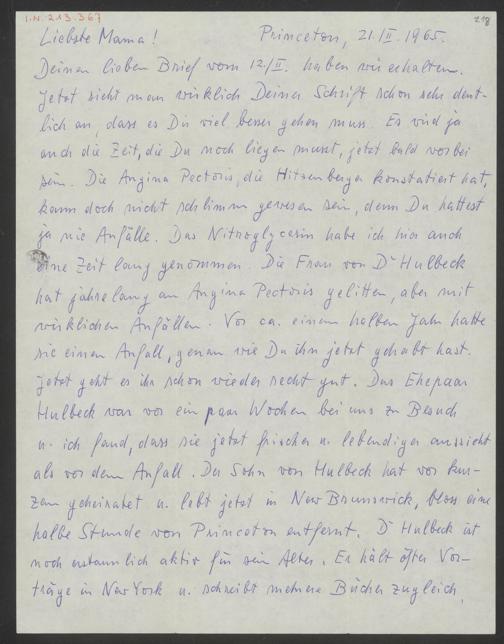 I.N. 213.367
218
Liebste Mama! Princeton, 21./II. 1965.
Deinen lieben Brief vom 12./II. haben wir erhalten.
Jetzt sieht man wirklich Deiner Schrift schon sehr deut-
lich an, dass es Dir viel besser gehen muss. Es wird ja
auch die Zeit, die Du noch liegen musst, jetzt bald vorbei
sein. Die Angina Pectoris, die Hitzenberger konstatiert hat,
kann doch nicht schlimm gewesen sein, denn Du hattest
ja nie Anfälle. Das Nitroglycerin habe ich hier auch
eine Zeit lang genommen. Die Frau von Dr Hulbeck
hat jahrelang an Angina Pectoris gelitten, aber mit
wirklichen Anfällen. Vor ca. einem halben Jahr hatte
sie einen Anfall, genau wie Du ihn jetzt gehabt hast.
Jetzt geht es ihr schon wieder recht gut. Das Ehepaar
Hulbeck war vor ein paar Wochen bei uns zu Besuch
u. ich fand, dass sie jetzt frischer u. lebendiger aussieht
als vor dem Anfall. Der Sohn von Hulbeck hat vor kur-
zem geheiratet u. lebt jetzt in New Brunswick, bloss eine
halbe Stunde von Princeton entfernt. Dr Hulbeck ist
noch erstaunlich aktiv für sein Alter. Er hält öfter Vor-
träge in New York u. schreibt mehrere Bücher zugleich.